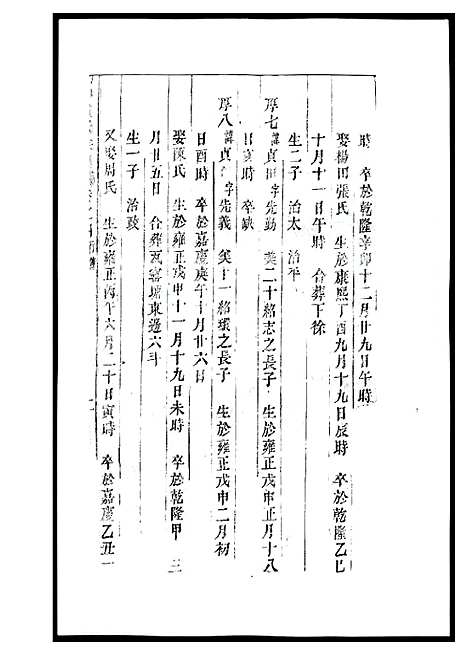 時 卒於乾隆辛卯十二月廿九日午時
娶楊田張氏 生於康熙丁酉九月十九日辰時 卒於乾隆乙巳
十月十一日午時 合葬下徐
生二子 治太 治平
厚七 諱貞田字先勤 美二十緒志之長子 生於雍正戊申正月十八
日亥時 卒缺
厚八 諱貞 字先義 美十一緒環之長子 生於雍正戊申二月初
日酉時 卒於嘉慶庚午十月廿六日
娶陳氏 生於雍正戊申十一月十九日未時 卒於乾隆甲
月廿五日 合葬瓦窰塘東邊六斗 三
生一子 治政
又娶周氏 生於雍正丙午六月二十日寅時 卒於嘉慶乙丑一